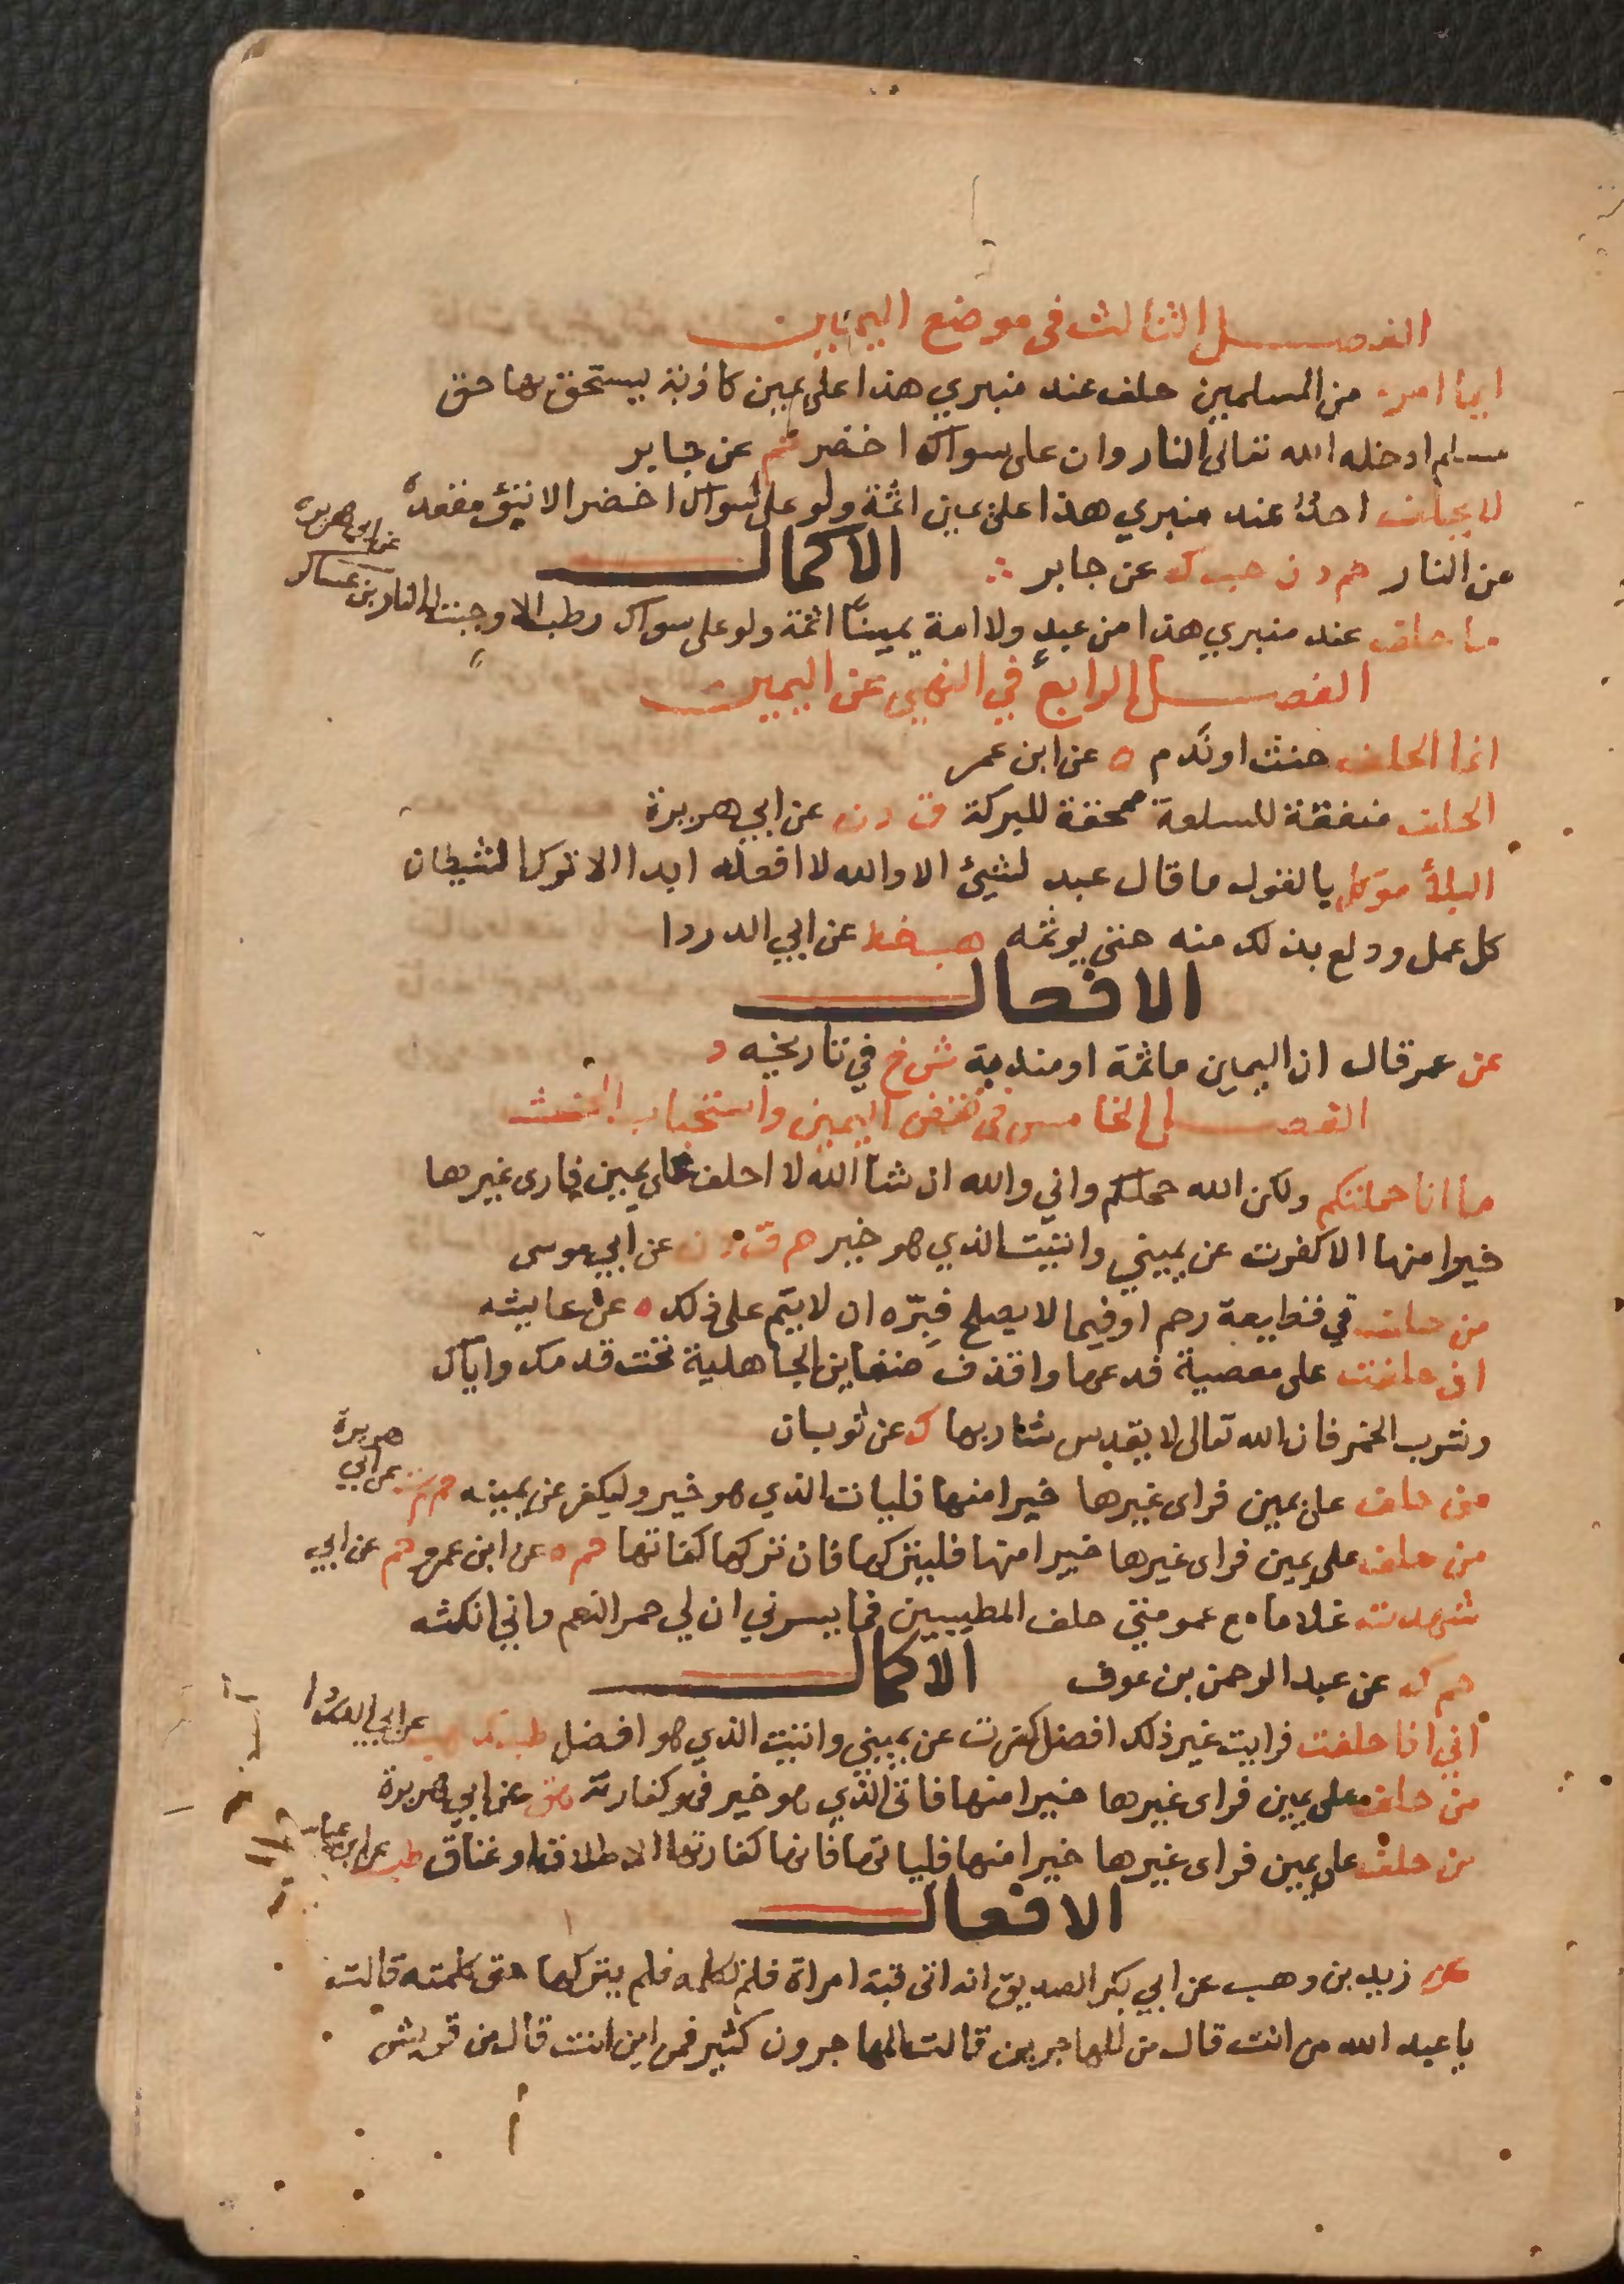 الفصل الثالث في موضع اليمين
ايما امرء من المسلمين حلف عند منبري هذا على يمين كاذبة يستحق بها حق
مسلم ادخله الله تعالى النار وان على سواك اخضر حم عن جابر
لا يحلف احد عند منبري هذا على يمين اثمة ولو على سواك اخضر الا تبوء مقعده
من النار حم د ن حب ك عن جابر
الاكمال
ما حلف عند منبري هذا من عبد ولا امة يمينا اثمة ولو على سواك رطب الا وجبت له النار بن عساكر
عن ابي هريرة
الفصل الرابع في النهي عن اليمين
انما الحلف حنث او ندم ه عن ابن عمر
الحلف منفقة للسلعة ممحقة للبركة ق د ن عن ابي هريرة
البلاء موكل بالقول ما قال عبد لشيء لا والله لا افعله ابدا الا ترك الشيطان
كل عمل وولع بذلك منه حتى يوثمه هب خط عن ابي الدردا
الافعال
عن عمر قال ان اليمين ماثمة او مندمة ش خ في تاريخه
الفصل الخامس في نقض اليمين واستحباب الحنث
ما انا حملتكم ولكن الله حملكم واني والله ان شا الله لا احلف على يمين فارى غيرها
خيرا منها الا كفرت عن يميني واتيت الذي هو خير حم ق د ن عن ابي موسى
من حلف في قطيعة رحم او فيما لا يصلح فبره ان لا يتم على ذلك ه عن عايشه
ان حلفت على معصية فدعها واقذف ضغاين الجاهلية تحت قدمك واياك
وشرب الخمر فان الله تعالى لا يقدس شاربها ك عن ثوبان
من حلف على يمين فراى غيرها خيرا منها فليات الذي هو خير وليكفر عن يمينه حم م ت عن ابي
هريرة
من حلف على يمين فراى غيرها خيرا منها فليتركها فان تركها كفارتها حم ه عن ابن عمرو حم عن ابي
شهدت غلاما مع عمومتي حلف المطيبين فما يسرني ان لي حمر النعم واني انكثه
حم ك عن عبد الرحمن بن عوف
الاكمال
اني اذا حلفت فرايت غير ذلك افضل كفرت عن يميني واتيت الذي هو افضل طب ك عن ابي الدردا
من حلف على يمين فراى غيرها خيرا منها فاتى الذي هو خير فهو كفارته هق عن ابي هريرة
من حلف على يمين فراى غيرها خيرا منها فلياتها فانها كفارتها الا طلاقا او عتاق طب عن ابن عباس
الافعال
عن زيد بن وهب عن ابي بكر الصديق انه اتى قبة امراة فلم تكلمه فلم يتركها حتى كلمته قالت
يا عبد الله من انت قال من المهاجرين قالت المهاجرون كثير فمن اين انت قال من قريش